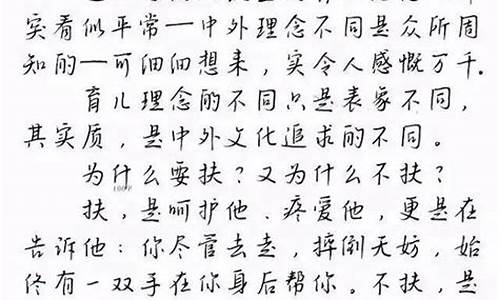 实看似平常—中外理念不同是众所周
知的—可细细想来，实令人感慨万千。
育儿理念的不同只是表象不同，
其实质，是中外文化追求的不同。
为什么要扶？又为什么不扶？
扶，是呵护他、疼爱他，更是在
告诉他：你尽管去走，摔倒无妨，始
终有一双手在你身后帮你。不扶，是